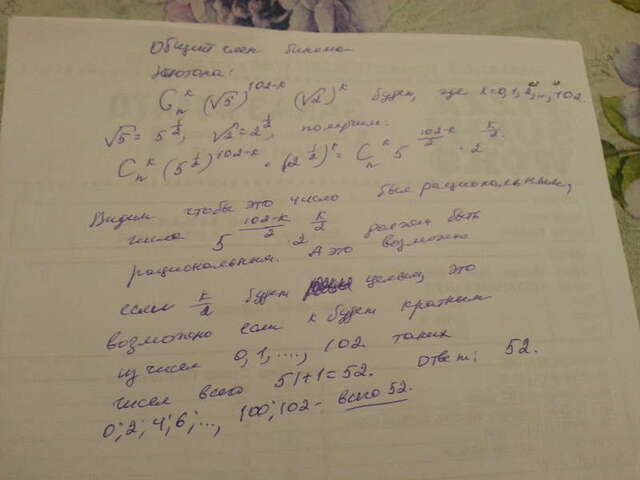 Общий член бинома
Ньютона:
C_n^k (√5)^{102-k} (√2)^k будет, где k=0,1,2,...,102.
√5 = 5^{1/2}, √2 = 2^{1/2}, получим:
C_n^k (5^{1/2})^{102-k} · (2^{1/2})^k = C_n^k 5^{(102-k)/2} · 2^{k/2}.
Видим чтобы это число был рациональным,
числа 5^{(102-k)/2} · 2^{k/2} должен быть
рациональным. А это возможно
если k/2 будет целым, это
возможно если k будет кратным
из чисел 0,1,...., 102 таких
чисел всего 51+1=52. Ответ: 52.
0; 2; 4; 6; ..., 100; 102 - всего 52.